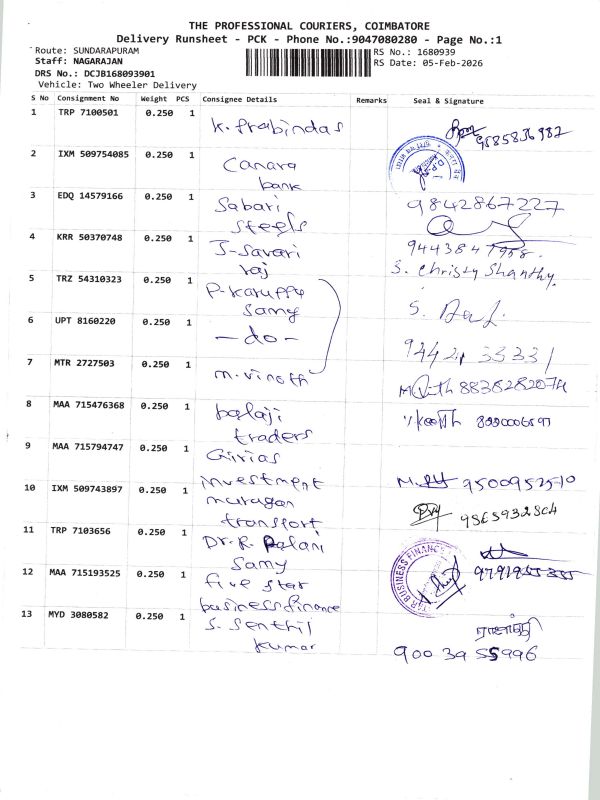 THE PROFESSIONAL COURIERS, COIMBATORE
Delivery Runsheet - PCK - Phone No.:9047080280 - Page No.:1
Route: SUNDARAPURAM
RS No.: 1680939
Staff: NAGARAJAN
RS Date: 05-Feb-2026
DRS No.: DCJB168093901
Vehicle: Two Wheeler Delivery
S No Consignment No Weight PCS Consignee Details Remarks Seal & Signature
1 TRP 7100501 0.250 1 K. Prabindas
2 IXM 509754085 0.250 1 Canara
bank
3 EDQ 14579166 0.250 1 Sabari 9842867227
Steels
4 KRR 50370748 0.250 1 J-Savari
raj S. Christy Shanthy.
5 TRZ 54310323 0.250 1 P-Karuppu
Samy
6 UPT 8160220 0.250 1 -do-
7 MTR 2727503 0.250 1 m. vinoth
8 MAA 715476368 0.250 1 balaji
traders
9 MAA 715794747 0.250 1 Girias
investment
10 IXM 509743897 0.250 1 murugan
transport
11 TRP 7103656 0.250 1 Dr. R. Palani
Samy
12 MAA 715193525 0.250 1 five star
business finance
13 MYD 3080582 0.250 1 S. Senthil
kumar 900 39 55996